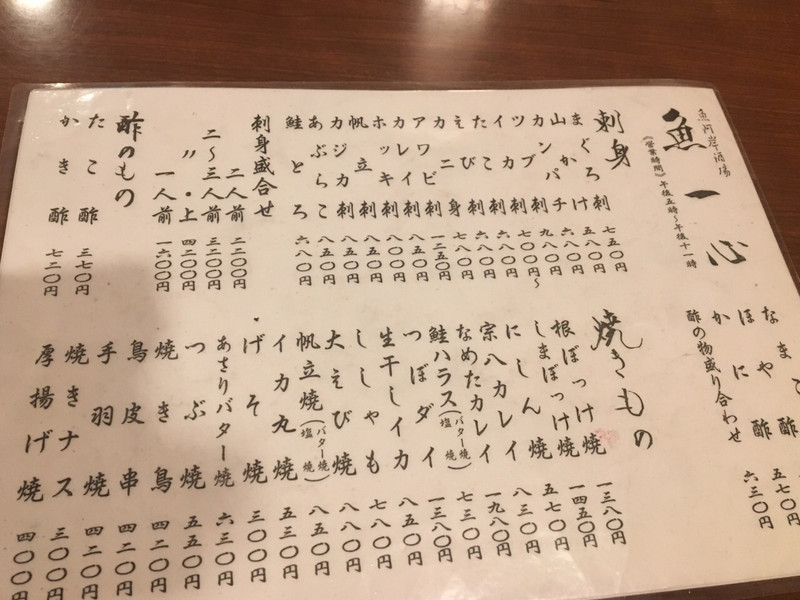 魚河岸酒場
魚一心
《営業時間》午後五時〜午後十一時
刺身
まぐろ刺 七五〇円
山かけ 五八〇円
カンパチ 六八〇円
ツブ刺 九八〇円
イカ刺 七〇〇円〜
たこ刺 六八〇円
えび刺 六八〇円
カニ刺身 七八〇円
アワビ刺 一二五〇円
カレイ刺 八八〇円
ホッキ刺 八〇〇円
帆立刺 八五〇円
カジカ刺 八五〇円
あぶらこ 八五〇円
鮭とろ 六八〇円
刺身盛合せ
二人前 二二〇〇円
二〜三人前 三二〇〇円
〃・上 四二〇〇円
一人前 一六〇〇円
酢のもの
たこ酢 三七〇円
かき酢 七二〇円
なまこ酢
ほや酢 五七〇円
かに 六三〇円
酢の物盛り合わせ
焼きもの
根ぼっけ焼 一三八〇円
しまぼっけ焼 一四五〇円
にしん焼 五七〇円
宗八カレイ 八三〇円
なめたカレイ 一九八〇円
鮭ハラス(バター焼 塩焼) 七三〇円
つぼダイ 一三八〇円
生干しイカ 八五〇円
ししゃも 七八〇円
大えび焼 八八〇円
帆立焼(バター焼 塩焼) 八五〇円
イカ丸焼 五三〇円
げそ焼 三〇〇円
あさりバター焼 六三〇円
つぶ焼 五五〇円
焼き鳥 四二〇円
鳥皮串 四二〇円
手羽焼 四二〇円
焼きナス 三〇〇円
厚揚げ焼 四〇〇円